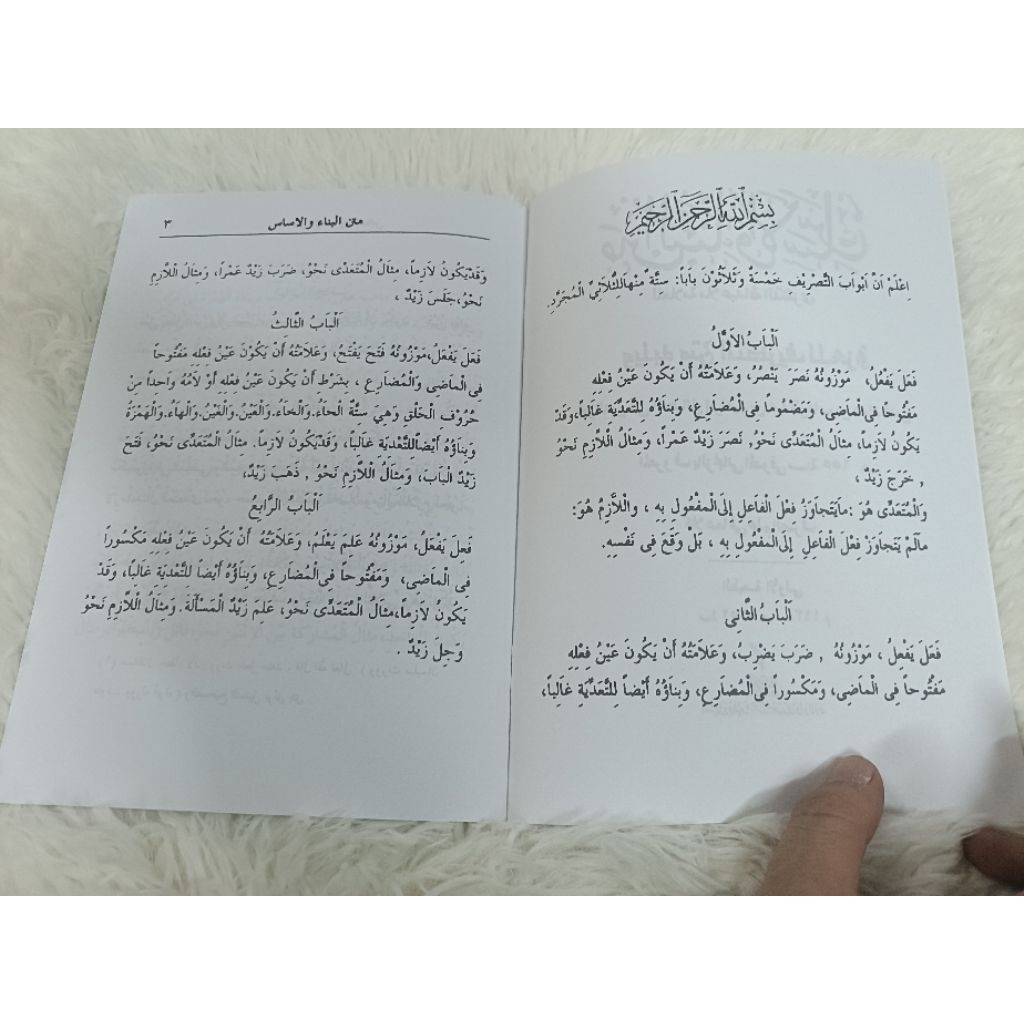 بِسْمِ اللهِ الرَّحْمٰنِ الرَّحِيْمِ
اِعْلَمْ اَنَّ اَبْوَابَ التَّصْرِيْفِ خَمْسَةٌ وَثَلاَثُوْنَ بَاباً: سِتَّةٌ مِنْهَالِلثُّلاَثِيِّ الْمُجَرَّدِ.
اَلْبَابُ الاَوَّلُ
فَعَلَ يَفْعُلُ، مَوْزُونُهُ نَصَرَ يَنْصُرُ، وَعَلاَمَتُهُ أَنْ يَكُونَ عَيْنُ فِعْلِهِ
مَفْتُوحاً فِى الْمَاضِى، وَمَضْمُوماً فِى الْمُضَارِعِ، وَبِنَاؤُهُ لِلتَّعْدِيَةِ غَالِباً، وَقَدْ
يَكُونُ لاَزِماً، مِثَالُ الْمُتَعَدِّى نَحْوُ, نَصَرَ زَيْدٌ عَمْراً، وَمِثَالُ اللاَّزِمِ نَحْوُ
, خَرَجَ زَيْدٌ ،
وَالْمُتَعَدِّى هُوَ :مَايَتَجاَوَزُ فِعْلَ الْفَاعِلِ اِلَى الْمَفْعُولِ بِهِ ، وَاللاَّزِمُ هُوَ:
مَالَمْ يَتَجاَوَزْ فِعْلَ الْفَاعِلِ اِلَى الْمَفْعُولِ بِهِ ، بَلْ وَقَعَ فِى نَفْسِهِ.
اَلْبَابُ الثَّانِى
فَعَلَ يَفْعِلُ ، مَوْزُونُهُ , ضَرَبَ يَضْرِبُ، وَعَلاَمَتُهُ أَنْ يَكُونَ عَيْنُ فِعْلِهِ
مَفْتُوحاً فِى الْمَاضِى، وَمَكْسُوراً فِى الْمُضَارِعِ، وَبِنَاؤُهُ أَيْضاً لِلتَّعْدِيَةِ غَالِباً،
متن البناء والاساس ٣
وَقَدْيَكُونُ لاَزِماً، مِثَالُ الْمُتَعَدِّى نَحْوُ، ضَرَبَ زَيْدٌ عَمْراً، وَمِثَالُ اللاَّزِمِ
نَحْوُ،جَلَسَ زَيْدٌ ،
اَلْبَابُ الثَّالِثُ
فَعَلَ يَفْعَلُ،مَوْزُونُهُ فَتَحَ يَفْتَحُ، وَعَلاَمَتُهُ أَنْ يَكُوْنَ عَيْنُ فِعْلِهِ مَفْتُوحاً
فِى الْمَاضِى وَالْمُضَارِعِ ، بِشَرْطِ أَنْ يَكُونَ عَيْنُ فِعْلِهِ أَوْ لاَمُهُ وَاحِداً مِنْ
حُرُوْفِ الْحَلْقِ وَهِيَ سِتَّةٌ اَلْحَاءُ.وَالْخَاءُ.وَالْعَيْنُ.وَالْغَيْنُ.وَالْهَاءُ.وَالْهَمْزَةُ
وَبِنَاؤُهُ أَيْضاًلِلتَّعْدِيَةِ غَالِباً، وَقَدْيَكُونُ لاَزِماً. مِثَالُ الْمُتَعَدِّى نَحْوُ، فَتَحَ
زَيْدٌ الْبَابَ، وَمِثَالُ اللاَّزِمِ نَحْوُ , ذَهَبَ زَيْدٌ،
اَلْبَابُ الرَّابِعُ
فَعِلَ يَفْعَلُ، مَوْزُونُهُ عَلِمَ يَعْلَمُ، وَعَلاَمَتُهُ أَنْ يَكُونَ عَيْنُ فِعْلِهِ مَكْسُوراً
فِى الْمَاضِى، وَمَفْتُوحاً فِى الْمُضَارِعِ، وَبِنَاؤُهُ أَيْضاً لِلتَّعْدِيَةِ غَالِباً، وَقَدْ
يَكُونُ لاَزِماً،مِثَالُ الْمُتَعَدِّى نَحْوُ، عَلِمَ زَيْدٌ الْمَسْأَلَةَ. وَمِثَالُ اللاَّزِمِ نَحْوُ
وَجِلَ زَيْدٌ .